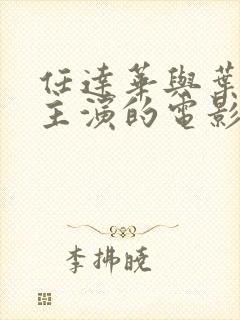 任達華與葉
主演的電影
李拂曉